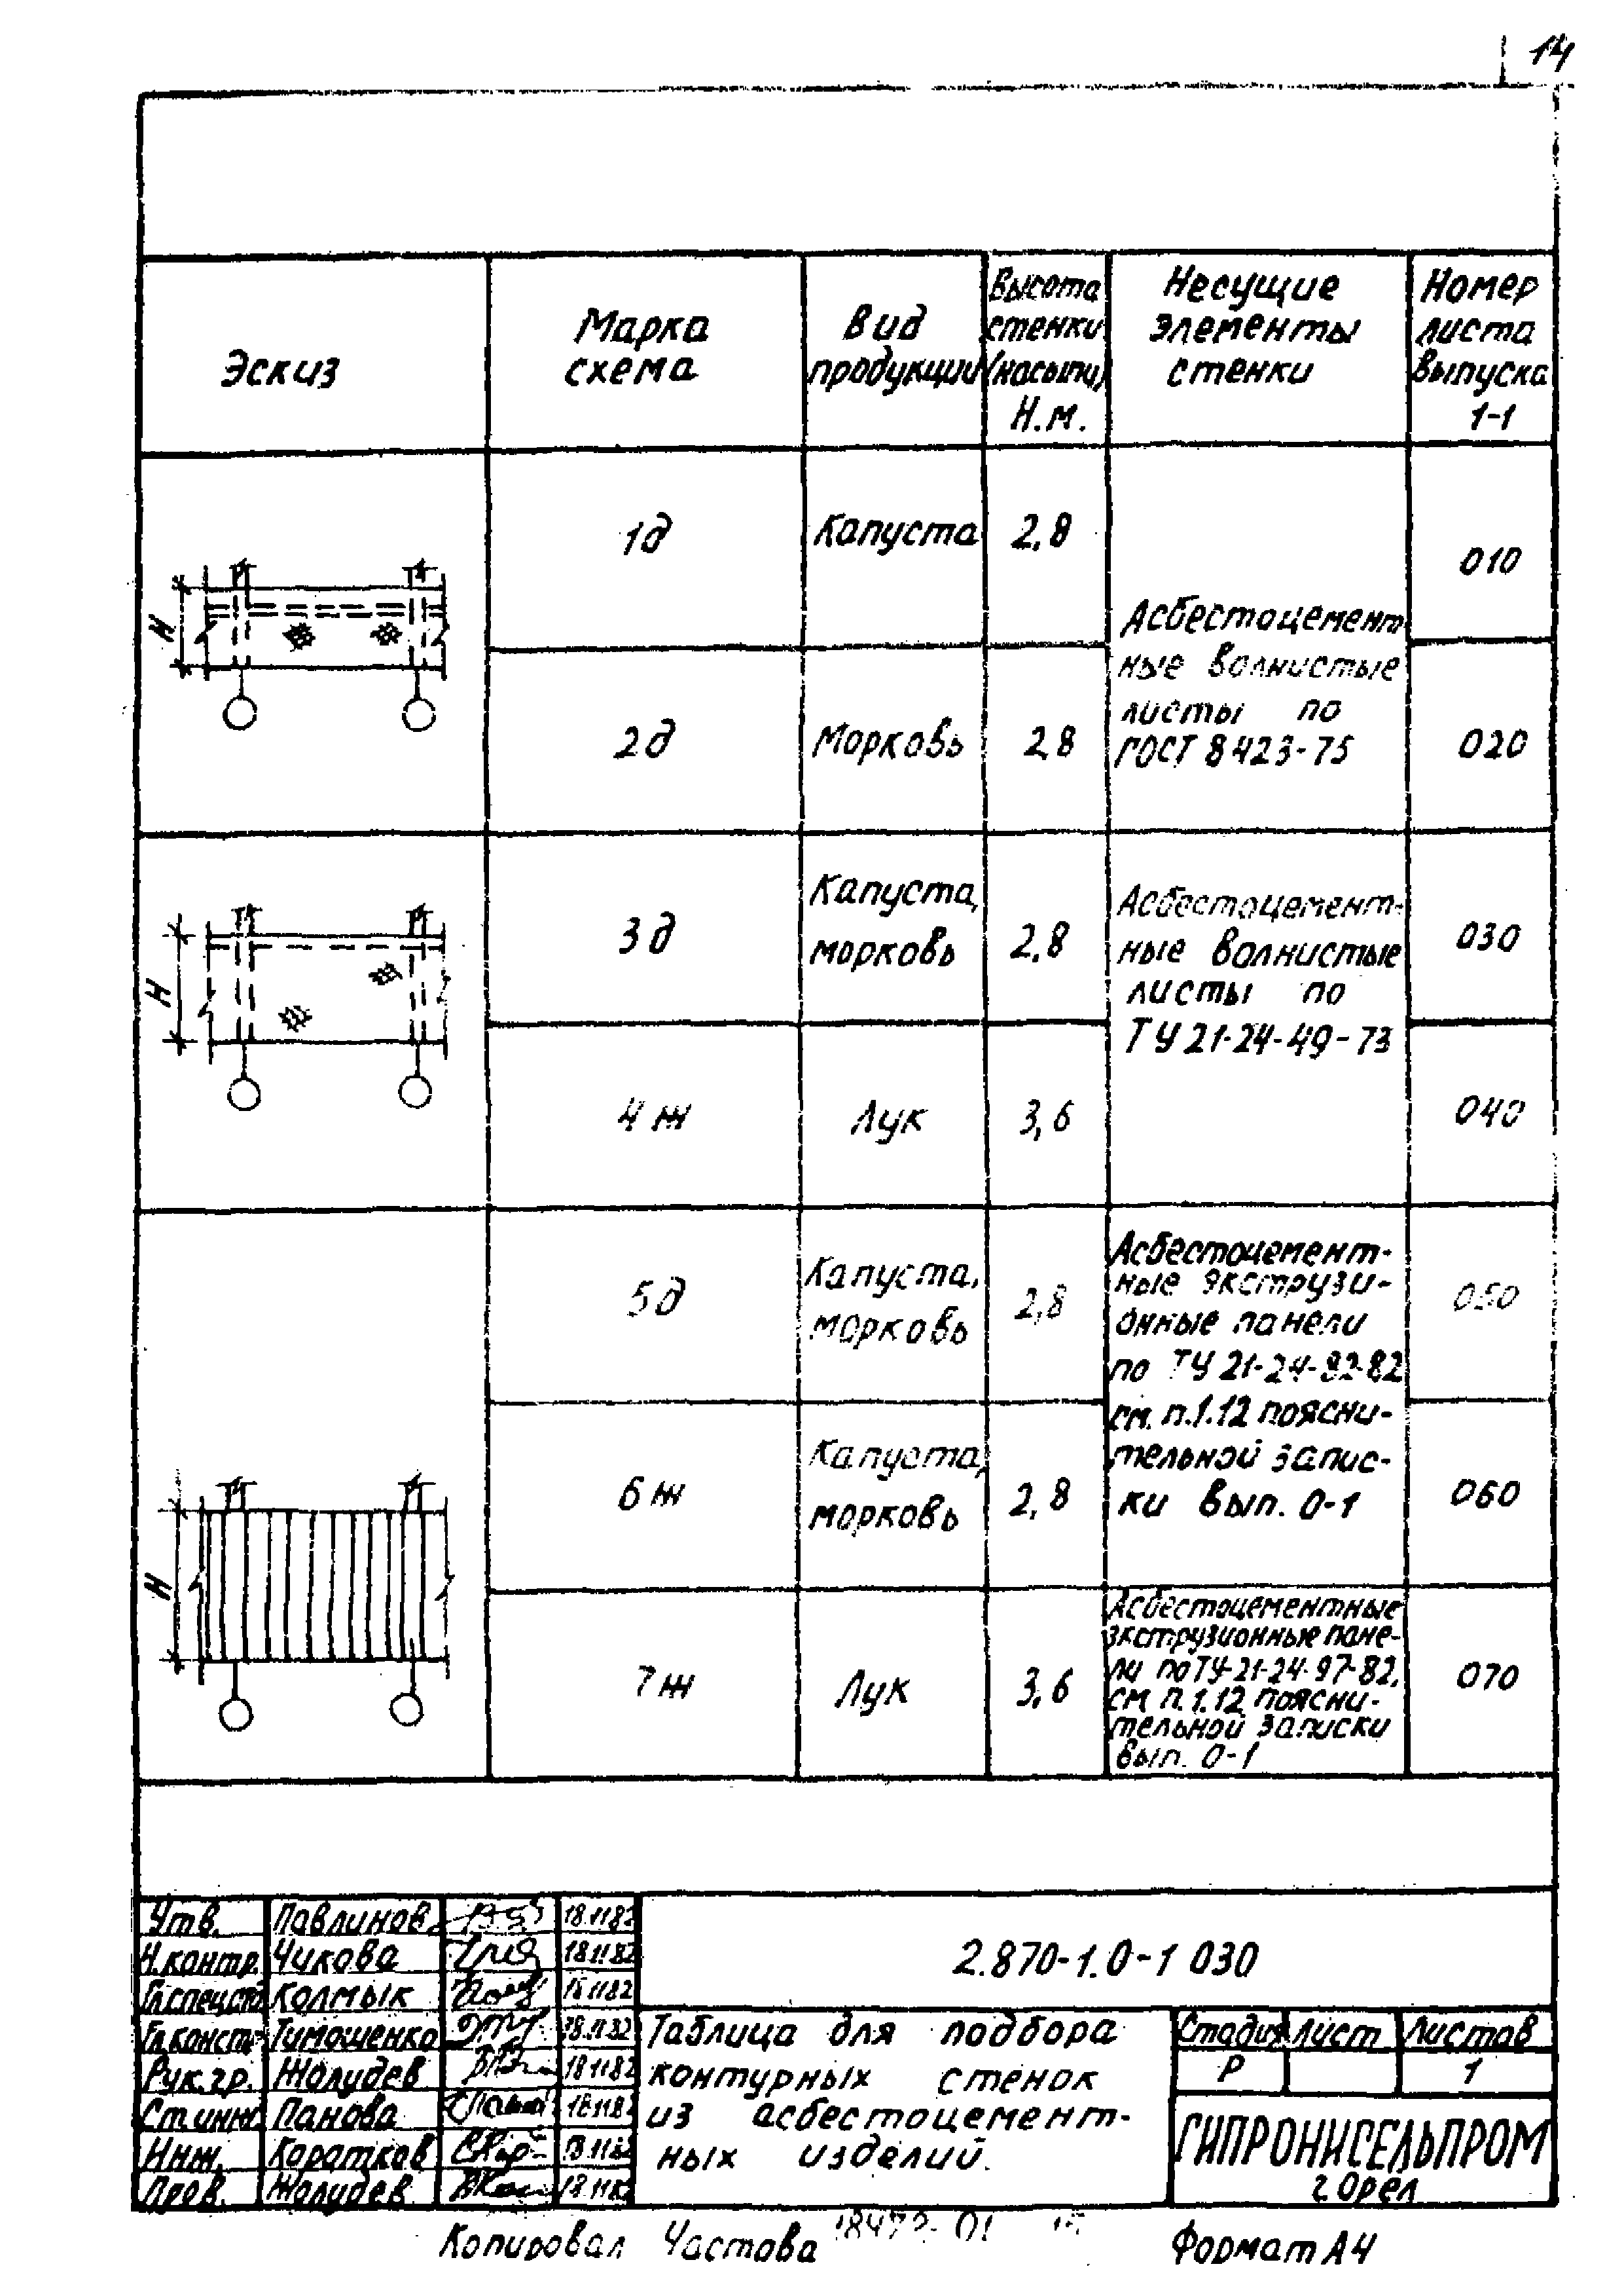 14
Эскиз
Марка
схема
Вид
продукции
Высота
стенки
(насыпи)
Н.м.
Несущие
элементы
стенки
Номер
листа
выпуска
1-1
Н
1д
Капуста
2,8
Асбестоцемент
ные волнистые
листы по
ГОСТ 8423-75
010
2д
Морковь
2,8
020
Н
3д
Капуста,
морковь
2,8
Асбестоцемент-
ные волнистые
листы по
ТУ 21-24-49-73
030
4ж
Лук
3,6
040
Н
5д
Капуста,
морковь
2,8
Асбестоцемент-
ные экструзи-
онные панели
по ТУ 21-24-92-82
см. п.1.12 поясни-
тельной запис-
ки вып. 0-1
050
6ж
Капуста,
морковь
2,8
060
7ж
Лук
3,6
Асбестоцементные
экструзионные пане-
ли по ТУ-21-24-97-82,
см п.1.12 поясни-
тельной записки
вып. 0-1
070
Утв. Павлинов 18.11.82
Н.контр. Чикова 18.11.82
Гл.спец.отд Колмык
Гл.констр Тимошенко 18.11.82
Рук.гр. Жолудев 18.11.82
Ст инж Панова 18.11.82
Инж. Коратков
Пров. Жолудев 18.11.82
2.870-1.0-1 030
Таблица для подбора
контурных стенок
из асбестоцемент-
ных изделий.
Стадия Лист Листов
Р 1
ГИПРОНИСЕЛЬПРОМ
г.Орел
Копировал Частова 18472-01
Формат А4